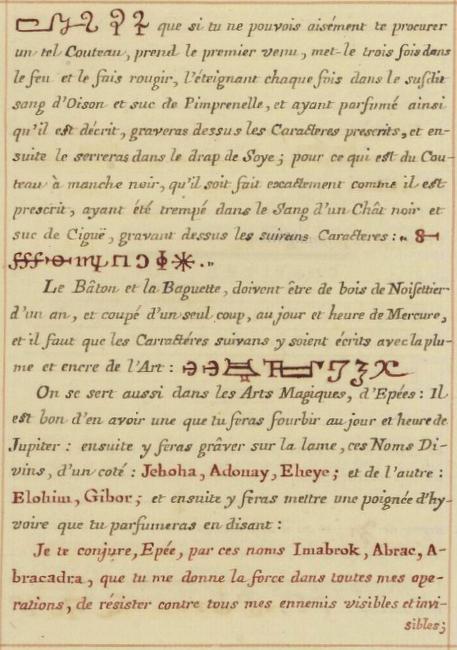 que si tu ne pouvois aisément te procurer
un tel Couteau, prend le premier venu, met-le trois fois dans
le feu et le fais rougir, l'éteignant chaque fois dans le susdit
sang d'Oison et suc de Pimprenelle, et ayant parfumé ainsi
qu'il est décrit, graveras dessus les Caracteres prescrits, et en-
suite le serreras dans le drap de Soye; pour ce qui est du Cou-
teau à manche noir, qu'il soit fait exactement comme il est
prescrit, ayant été trempé dans le Sang d'un Chât noir et
suc de Ciguë, gravant dessus les suivans Caracteres:
Le Bâton et la Baguette, doivent être de bois de Noisettier
d'un an, et coupé d'un seul coup, au jour et heure de Mercure,
et il faut que les Carractéres suivans y soient écrits avec la plu-
me et encre de l'Art:
On se sert aussi dans les Arts Magiques, d'Epées: Il
est bon d'en avoir une que tu feras fourbir au jour et heure de
Jupiter: ensuite y feras grâver sur la lame, ces Noms Di-
vins, d'un coté: Jehoha, Adonay, Eheye; et de l'autre:
Elohim, Gibor; et ensuite y feras mettre une poignée d'hy-
voire que tu parfumeras en disant:
Je te conjure, Epée, par ces noms Imabrok, Abrac, A-
bracadra, que tu me donne la force dans toutes mes ope-
rations, de résister contre tous mes ennemis visibles et invi-
sibles;